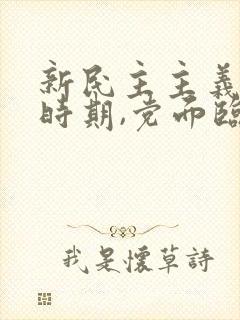 新民主主義
時期,党而臨
我是懷草詩